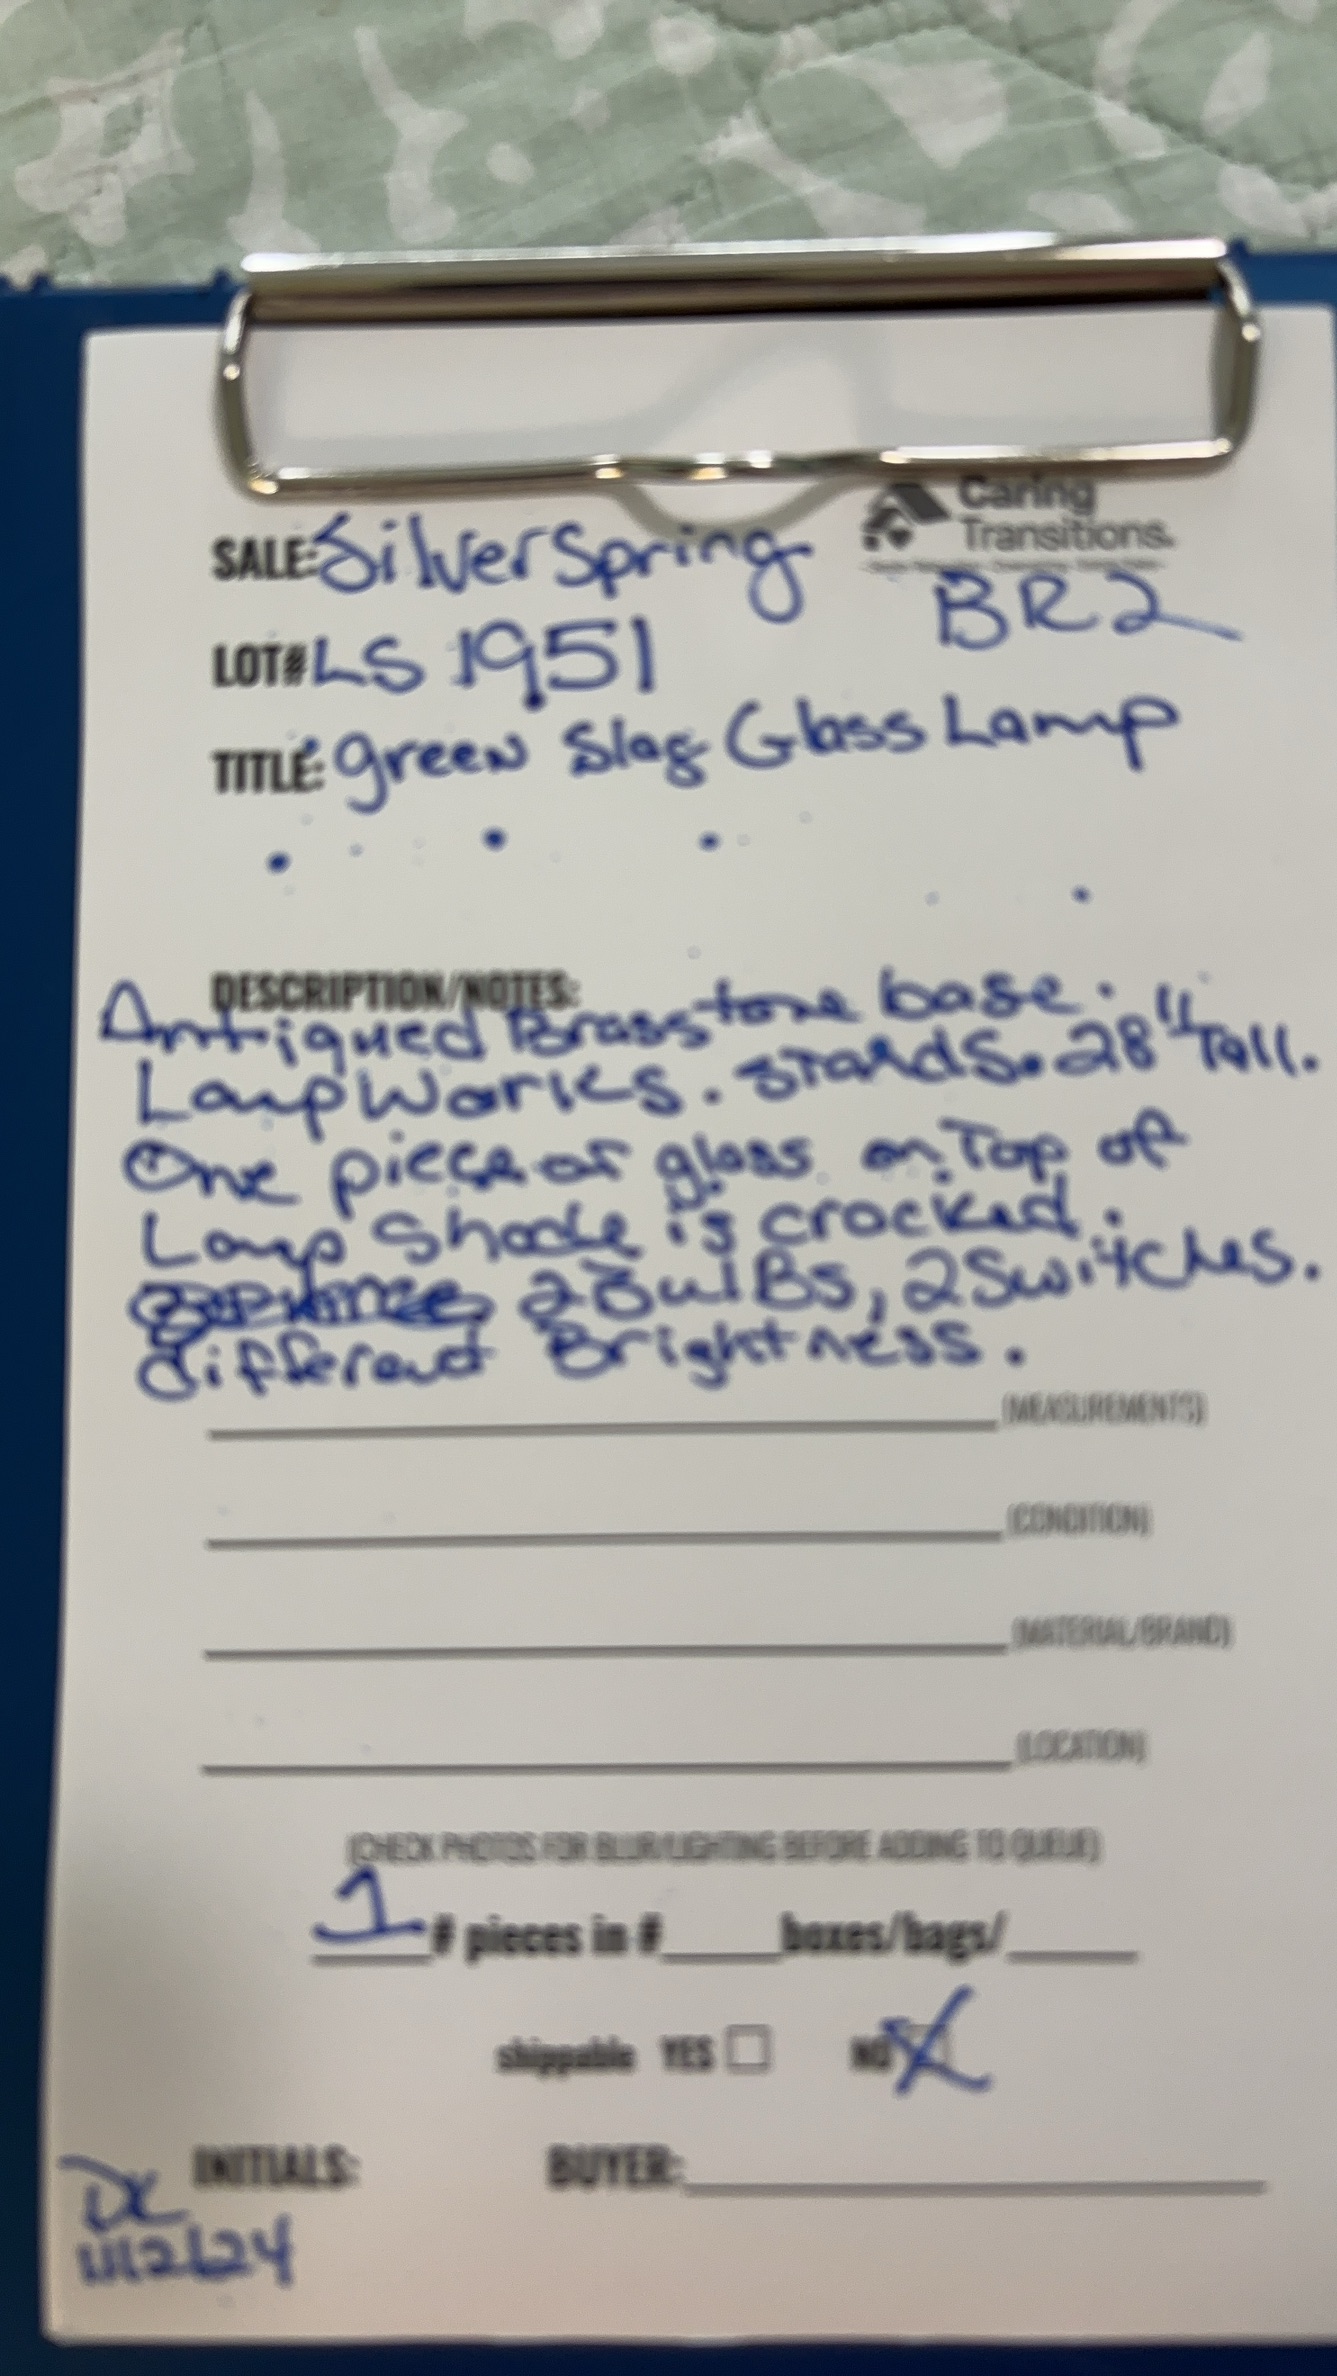 Caring
Transitions.
SALE: Silver Spring
BR2
LOT# LS 1951
TITLE: green Slag Glass Lamp
DESCRIPTION/NOTES:
Antiqued Brasstone base.
Lamp Works. Stands. 28" Tall.
One piece of glass on Top of
Lamp Shade is cracked.
2 BulBs, 2 Switches.
different Brightness.
(MEASUREMENTS)
(CONDITION)
(MATERIAL/BRAND)
(LOCATION)
(CHECK PHOTOS FOR BLUR/LIGHTING BEFORE ADDING TO QUEUE)
1 # pieces in # boxes/bags/
shippable YES NO X
INITIALS: BUYER:
DC